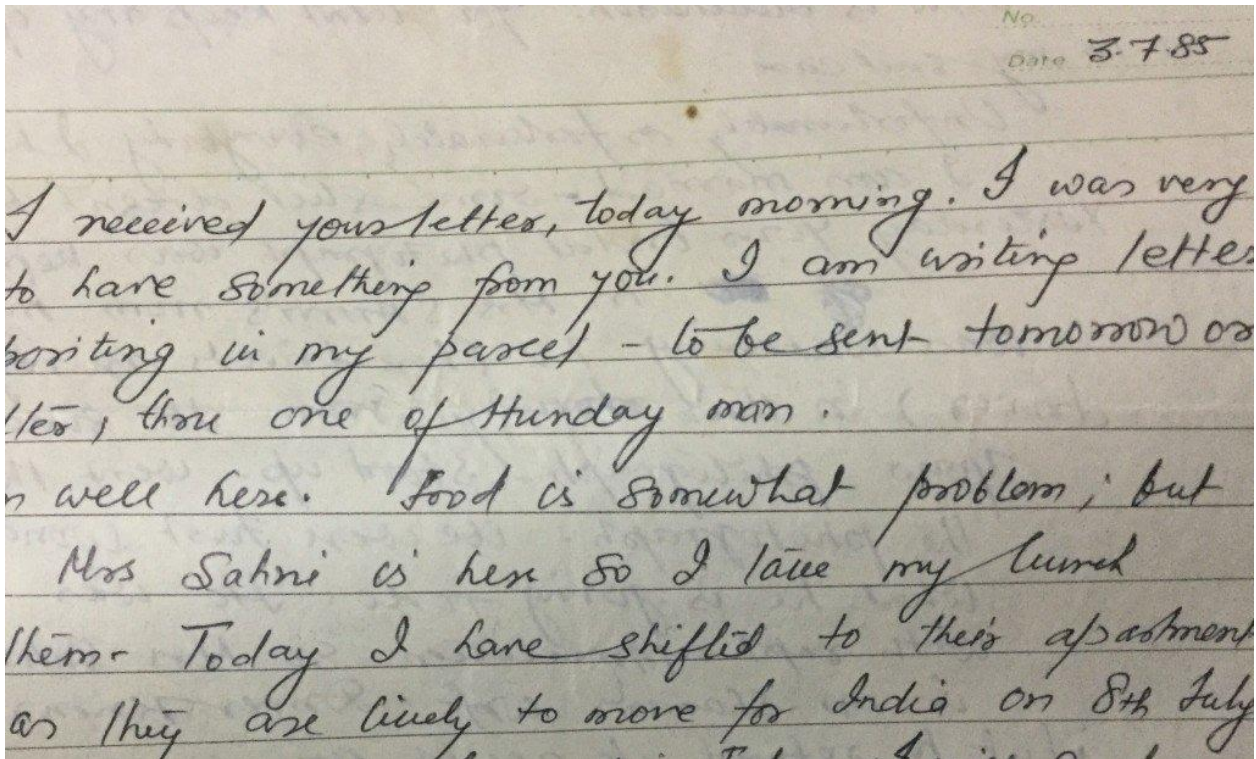 No.
Date 3.7.85
I received your letter, today morning. I was very
to have something from you. I am writing letter
positing in my parcel - to be sent tomorrow or
thru one of Hunday man.
well here. Food is somewhat problem; but
Mrs Sahni is here so I take my lunch
them. Today I have shifted to their apartment
as they are likely to move for India on 8th July